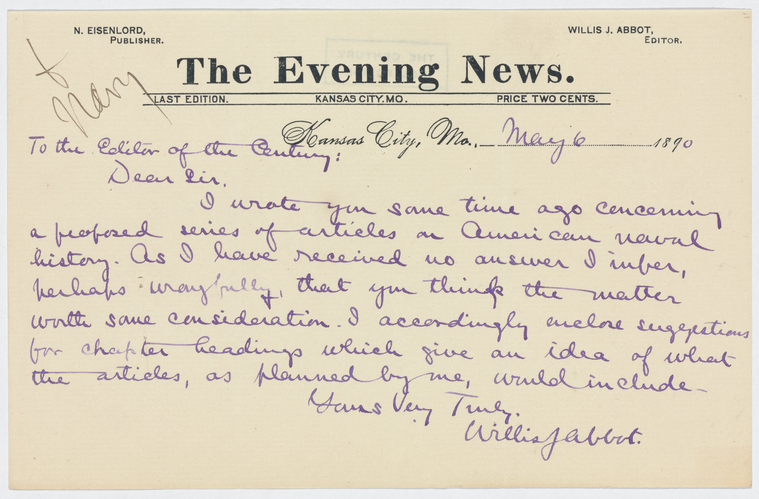 N. EISENLORD,
PUBLISHER.
WILLIS J. ABBOT,
EDITOR.
THE CENTURY
Navy
The Evening News.
LAST EDITION. KANSAS CITY, MO. PRICE TWO CENTS.
Kansas City, Mo., May 6 1890
To the Editor of the Century:
Dear Sir.
I wrote you some time ago concerning
a proposed series of articles on American naval
history. As I have received no answer I infer,
perhaps wrongfully, that you think the matter
worth some consideration. I accordingly enclose suggestions
for chapter headings which give an idea of what
the articles, as planned by me, would include—
Yours Very Truly.
Willis J Abbot.